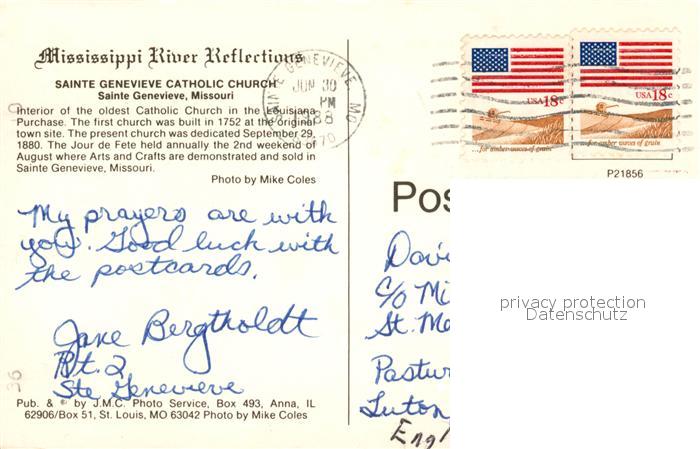 Mississippi River Reflections
SAINTE GENEVIEVE CATHOLIC CHURCH
Sainte Genevieve, Missouri
Interior of the oldest Catholic Church in the Louisiana
Purchase. The first church was built in 1752 at the original
town site. The present church was dedicated September 29,
1880. The Jour de Fete held annually the 2nd weekend of
August where Arts and Crafts are demonstrated and sold in
Sainte Genevieve, Missouri.
Photo by Mike Coles
GENEVIEVE, MO
JUN 30
PM
1988
USA 18c
...for amber waves of grain
USA 18c
...for amber waves of grain
P21856
My prayers are with
you. Good luck with
the postcards.
Jane Bergtholdt
Rt. 2
Ste Genevieve
Pub. & © by J.M.C. Photo Service, Box 493, Anna, IL
62906/Box 51, St. Louis, MO 63042 Photo by Mike Coles
Pos
Davi
c/o Mi
St. Ma
Pastur
Luton
Engl
privacy protection
Datenschutz